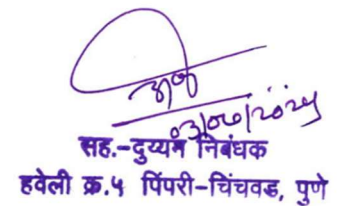 ०३/०७/२०२५
सह.-दुय्यम निबंधक
हवेली क्र.५ पिंपरी-चिंचवड, पुणे